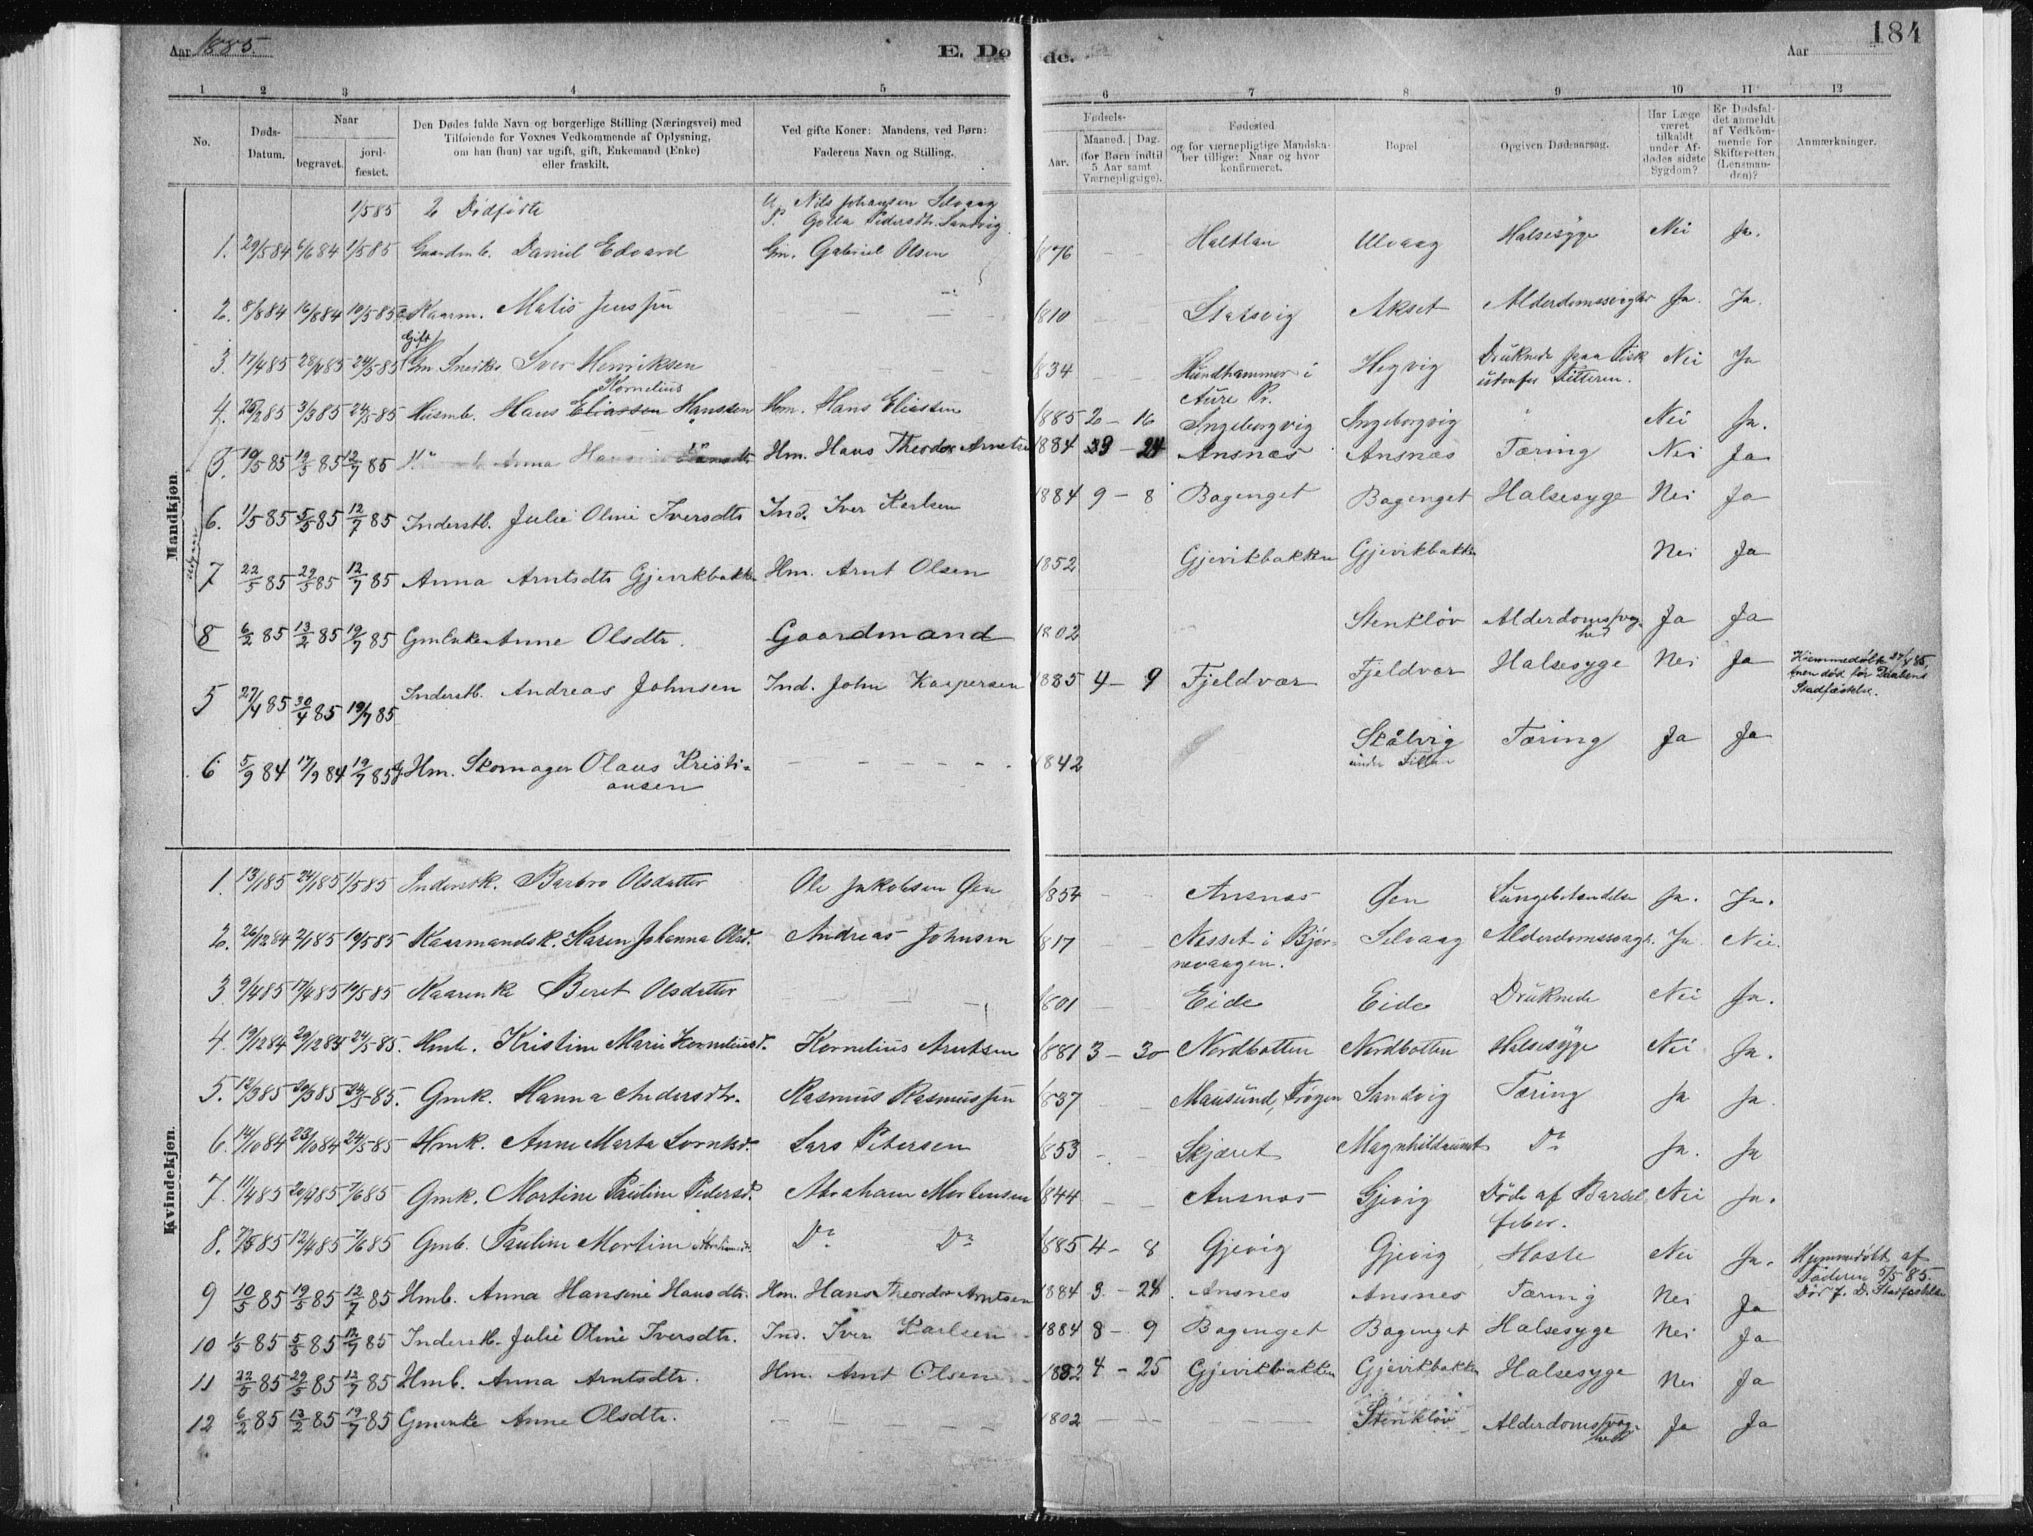 Aar 1885.
E. Døde.
Aar
184
1 2 3 4 5 6 7 8 9 10 11 12
No.
Døds-Datum.
Naar
begravet.
jordfæstet.
Den Dødes fulde Navn og borgerlige Stilling (Næringsvei) med
Tilføiende for Voxnes Vedkommende af Oplysning,
om han (hun) var ugift, gift, Enkemand (Enke)
eller fraskilt.
Ved gifte Koner: Mandens, ved Børn:
Faderens Navn og Stilling.
Fødsels-
Aar.
Maaned. Dag.
(for Børn indtil
5 Aar samt
Værnepligtige).
Fødested
og for værnepligtige Mandska-
ber tillige: Naar og hvor
konfirmeret.
Bopæl
Opgiven Dødsaarsag.
Har Læge
været
tilkaldt
under Af-
dødes sidste
Sygdom?
Er Dødsfal-
det anmeldt
af Vedkom-
mende for
Skifteretten
(Lensman-
den)?
Anmærkninger.
Mandkjøn
1/5 85 2 Dødfødte Nils Johansen Selvaag
Golla Pedersdtr. Sandvig
1. 29/5 84 6/6 84 1/5 85 Gaardmb. Daniel Edvard Gm. Gabriel Olsen 1876 - - Haltlan Ulvaag Halsesyge Nei Ja.
2. 8/8 84 16/8 84 10/5 85 Kaarm. Matis Jenssen - - 1810 - - Statsvig Akset Alderdomssvaghed Ja. Ja.
Gift
3. 17/4 85 28/4 85 24/5 85 Gm. Snedker Iver Henriksen - - 1834 - - Hundhammer i Hegvig Druknede paa Fisk Nei Ja
Aure Pr. udenfor Titteren.
Kornelius
4. 26/2 85 3/3 85 24/5 85 Husmb. Hans Eliassen Hanssen Hm. Hans Eliassen 1885 2 - 16 Ingeborgvig Ingeborgvig " Nei Ja.
5. 10/5 85 19/5 85 12/7 85 Anna Hm. Hans Theodor Arntsen 1884 3 - 24 Ansnæs Ansnæs Tæring Nei Ja
6. 1/5 85 5/5 85 12/7 85 Inderstb. Julie Oline Iversdtr Ind. Iver Karlsen 1884 9 - 8 Bagenget Bagenget Halsesyge Nei Ja
7 22/5 85 29/5 85 12/7 85 Anna Arntsdtr Gjevikbakken Hm. Arnt Olsen 1852 Gjevikbakken Gjevikbakken Nei Ja
8 6/2 85 13/2 85 19/7 85 Gm Enke Anne Olsdtr. Gaardmand 1802 Stenkløv Alderdomssvaghed Ja Ja
5 27/4 85 30/4 85 19/7 85 Inderstb. Andreas Johnsen Ind. John Kaspersen 1885 4 - 9 Fjeldvær Fjeldvær Halsesyge Nei Ja Hjemmedøbt 27/4 85,
men død før Daabens
Stadfæstelse.
6 5/9 84 17/9 84 19/7 85 Hm. Skomager Olaus Kristi- - - - - - 1842 Skålvig Tæring Ja Ja
ansen under Fillan
Kvindekjøn.
1. 13/1 85 24/1 85 1/5 85 Indersk. Barbro Olsdatter Ole Jakobsen Øen 1854 - - Ansnæs Øen Lungebetændelse Ja. Ja.
2. 26/12 84 2/1 85 10/5 85 Kaarmandsk. Karen Johanna Olsd. Andreas Johnsen 1817 - - Nesset i Bjør- Selvaag Alderdomssvagh. Ja Nei.
nevaagen.
3 9/4 85 17/4 85 10/5 85 Kaarenke Beret Olsdatter - - - 1801 - Eide Eide Druknede Nei Ja.
4. 19/12 84 29/12 84 24/5 85. Hmb. Kristine Marie Korneliusd. Kornelius Arntsen 1881 3 - 30 Nordbotten Nordbotten Halsesyge Nei Ja.
5. 12/3 85 20/3 85 24/5 85. Gmk. Hanna Andersdtr. Rasmus Rasmussen 1837 - - Mausund, Frøyen Sandvig Tæring Ja Ja.
6. 14/10 84 23/10 84 24/5 85 Hmk. Anne Marta Lorntsd. Lars Petersen 1853 - - Skjæret Magnhildsundet Do Ja. Ja
7. 11/4 85 20/4 85 7/6 85 Gmk. Mortine Pauline Pedersd. Abraham Mortensen 1844 - - Ansnæs Gjevig Døde af Barsel- Nei Ja.
feber.
8. 7/5 85 12/5 85 7/6 85 Gmb. Pauline Mortine Abrahamsd. Do Do 1885 4 - 8 Gjevig Gjevig Hoste Nei Ja. Hjemmedøbt af
Faderen 5/5 85.
Død f. D. Stadfæstelse
9 10/5 85 19/5 85 12/7 85 Hmb. Anna Hansine Hansdtr. Hm. Hans Theordor Arntsen 1884 3 - 24. Ansnes Ansnes Tæring Nei Ja
10 1/5 85 5/5 85 12/7 85 Inderstb. Julie Oline Iversdtr. Ind. Iver Karlsen 1884 8 - 9 Bagenget Bagenget Halsesyge Nei Ja
11 22/5 85 29/5 85 12/7 85 Hmb. Anna Arntsdtr. Hm. Arnt Olsen 1882 4 - 25 Gjevikbakken Gjevikbakken Halsesyge Nei Ja
12 6/2 85 13/2 85 19/7 85 Gmenke Anne Olsdtr. - - - 1802 - - - Stenkløv Alderdomssvag- Ja Ja
hed